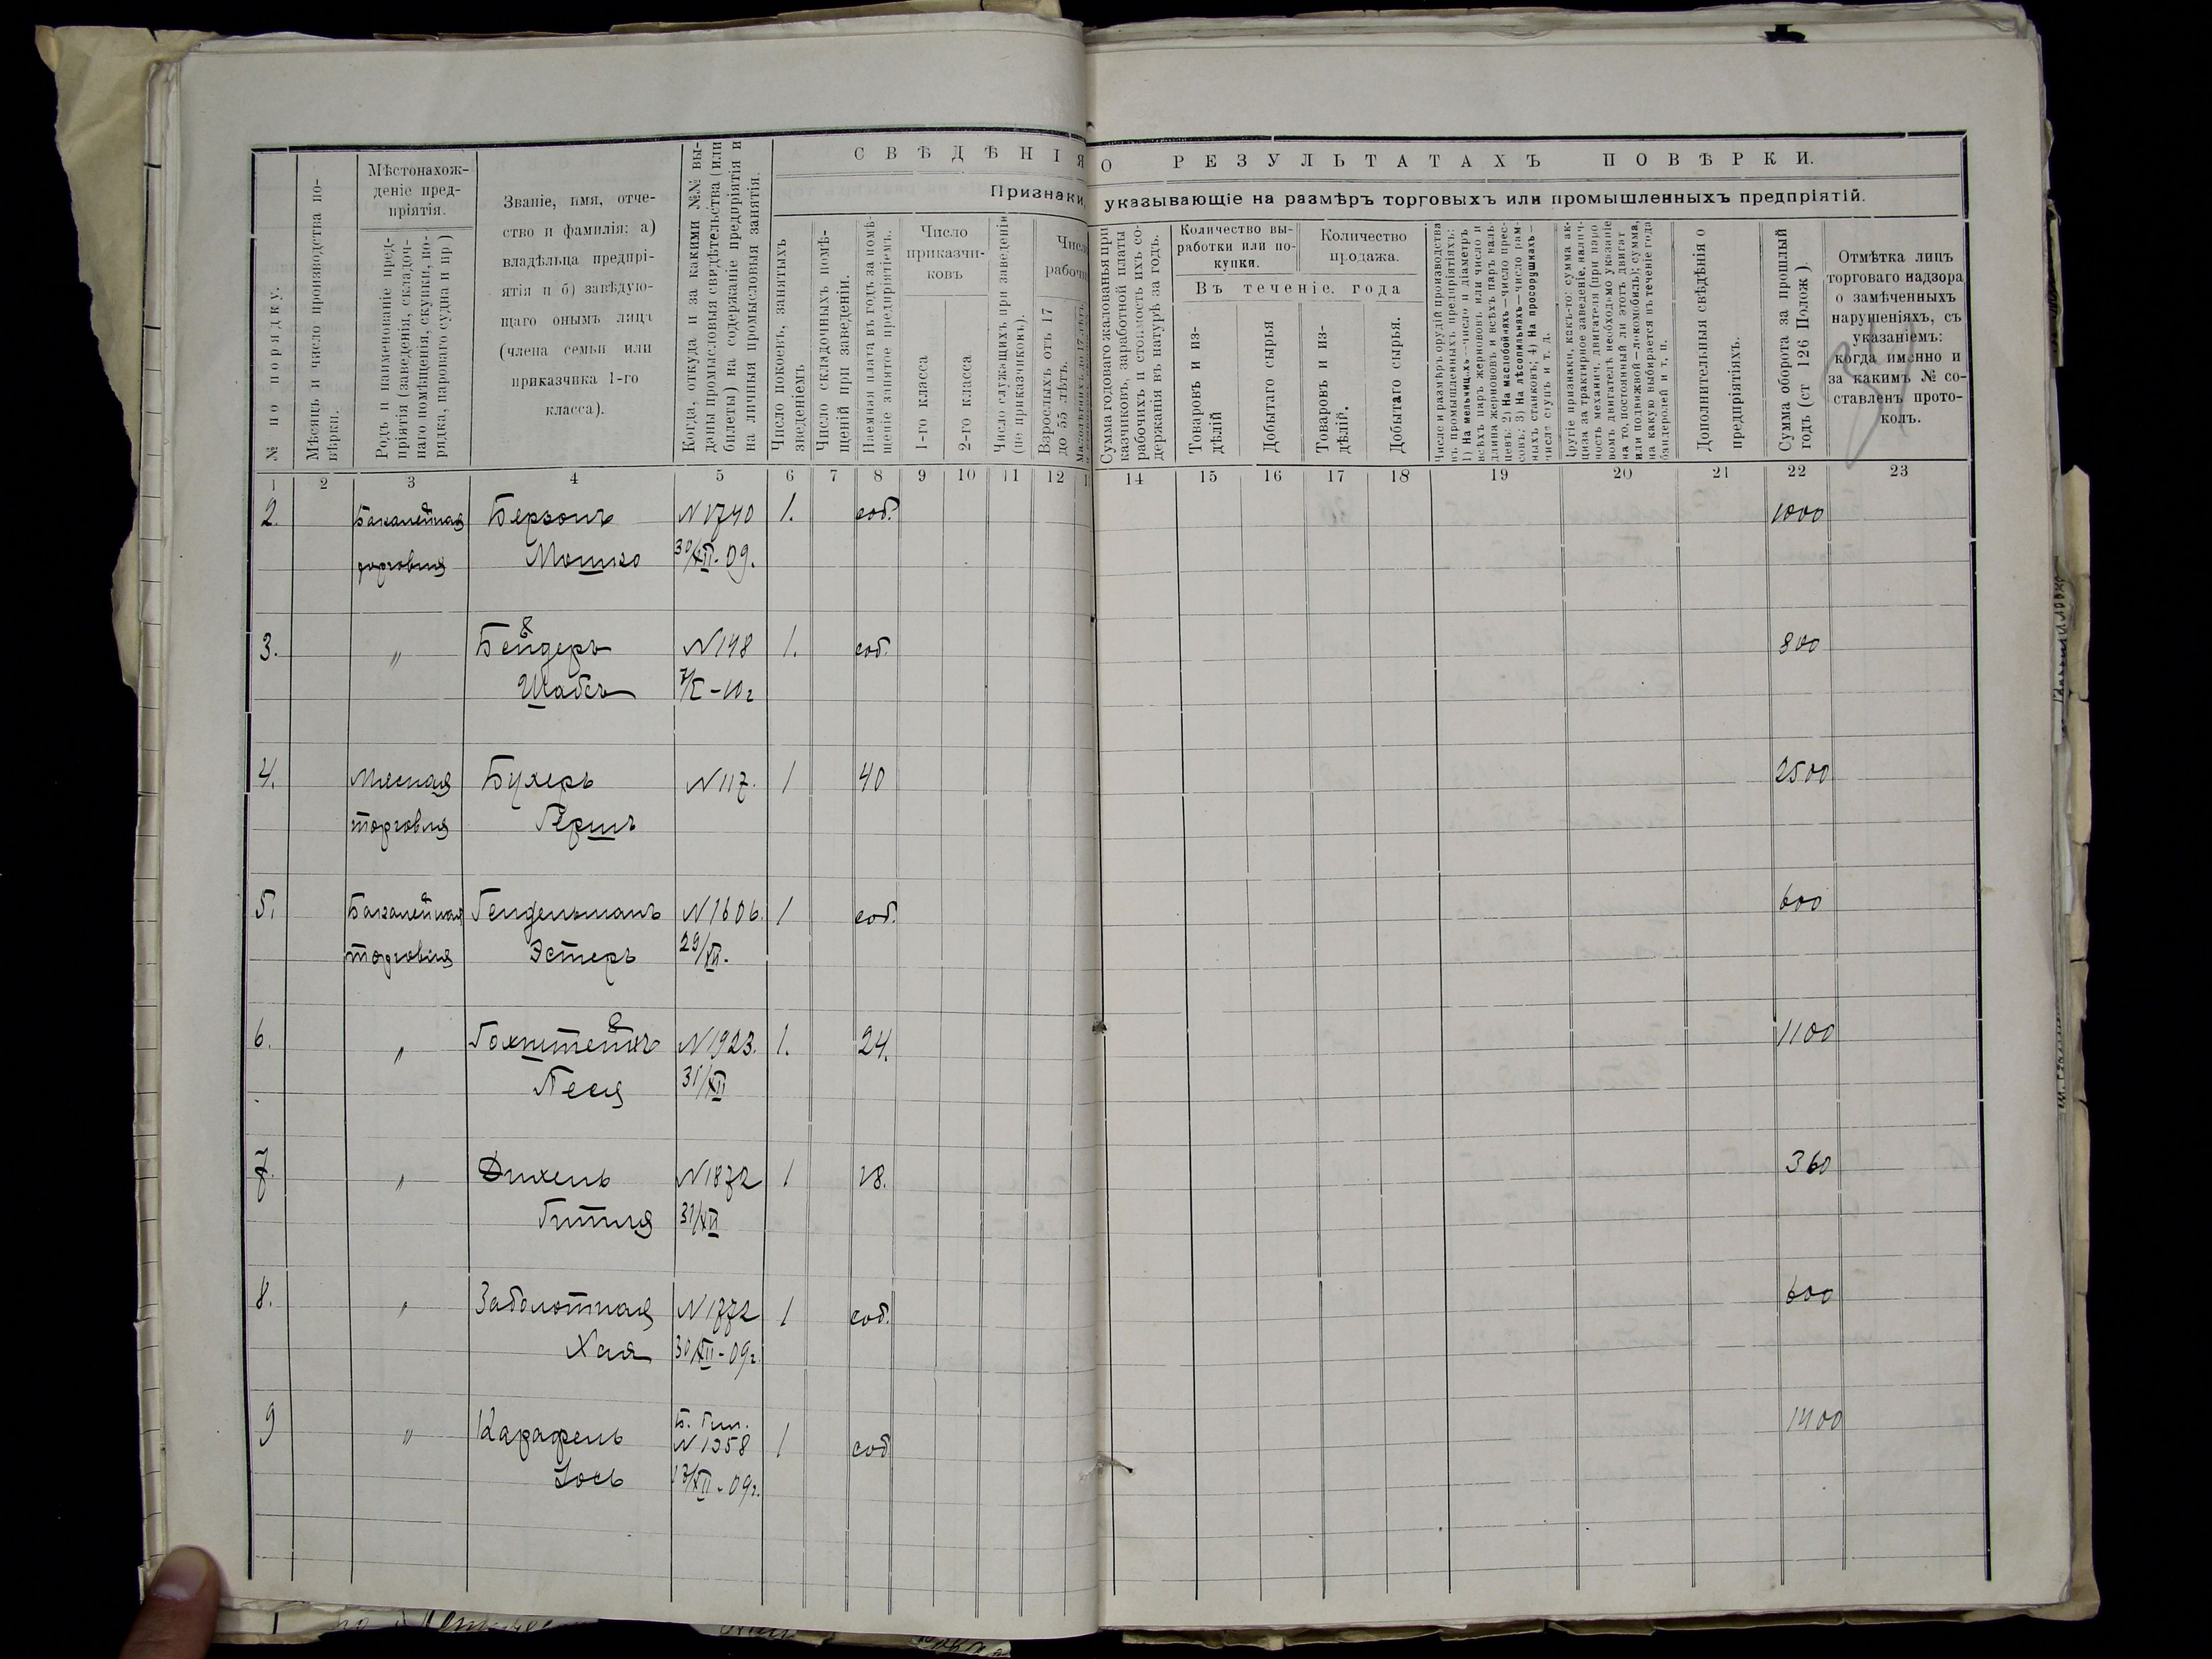 СВѢДѢНІЯ О РЕЗУЛЬТАТАХЪ ПОВѢРКИ.
Признаки, указывающіе на размѣръ торговыхъ или промышленныхъ предпріятій.
№ по порядку.
Мѣсяцъ и число производства по-
вѣрки.
Мѣстонахож-
деніе пред-
пріятія.
Родъ и наименованіе пред-
пріятія (заведенія, складоч-
наго помѣщенія, скупки, по-
рядка, парового судна и пр)
Званіе, имя, отче-
ство и фамилія: а)
владѣльца предпрі-
ятія и б) завѣдую-
щаго онымъ лица
(члена семьи или
приказчика 1-го
класса).
Когда, откуда и за какими №№ вы-
даны промысловыя свидѣтельства (или
билеты) на содержаніе предпріятія и
на личныя промысловыя занятія.
Число покоевъ, занятыхъ
зведеніемъ
Число складочныхъ помѣ-
щеній при заведеніи.
Наемная плата въ годъ за помѣ-
щеніе занятое предпріятіемъ.
Число
приказчи-
ковъ
1-го класса
2-го класса
Число служащихъ при заведеніи
(не приказчиковъ).
Число
рабочи
Взрослыхъ отъ 17
до 55 лѣтъ.
Сумма годоваго жалованья при
казчиковъ, заработной платы
рабочихъ и стоимость ихъ со-
держанія въ натурѣ за годъ.
Количество вы-
работки или по-
купки.
Количество
продажа.
Въ теченіе. года
Товаровъ и из-
дѣлій
Добытаго сырья
Товаровъ и из-
дѣлій.
Добытаго сырья.
Число и размѣръ орудій производства
въ промышленныхъ предпріятіяхъ:
1) На мельницахъ—число и діаметръ
всѣхъ паръ жернововъ или число и
длина жернововъ и всѣхъ паръ валь-
цевъ; 2) На маслобойняхъ—число прес-
совъ; 3) На лѣсопильняхъ—число рам-
ныхъ станковъ; 4) На просорушкахъ—
число ступъ и т. д.
Другіе признаки, какъ-то: сумма ак-
циза за трактирное заведеніе, налич-
ность механич. двигателя (при паро
вомъ двигателѣ необходимо указаніе
на то, постоянный ли этотъ двигат
или подвижной—локомобиль); сумма,
на какую выбирается въ теченіе года
бандеролей и т. п.
Дополнительныя свѣдѣнія о
предпріятіяхъ.
Сумма оборота за прошлый
годъ (ст 126 Полож ).
Отмѣтка лицъ
торговаго надзора
о замѣченныхъ
нарушеніяхъ, съ
указаніемъ:
когда именно и
за какимъ № со-
ставленъ прото-
колъ.
1 2 3 4 5 6 7 8 9 10 11 12 14 15 16 17 18 19 20 21 22 23
2. Бакалейная Берзонъ N 1740 1. соб. 1000
торговля Мошко 30/XII-09.
3. " Бейдеръ N 148 1. соб. 800
Шабсъ 7/I-10г
4. Мясная Бухеръ N 117. 1 40 2500
торговля Гершъ
5. Бакалейная Гендельманъ N 1606. 1 соб. 600
торговля Эстеръ 29/XII.
6. " Гохштейнъ N 1923. 1. 24. 1100
Песя 31/XII
7. " Дихель N 1872 1 18. 360
Гитля 31/XII
8. " Заболотная N 1772 1 соб. 600
Хая 30/XII-09г.
9 " Карафель N 1358 1 соб 1400
Іось 17/XII-09г.